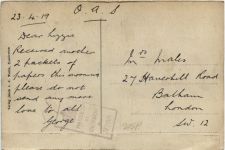 23-4-19
O. A. S
Dear Lizzie
Received another
2 packets of
papers this morning
please do not
send any more
love to all
George
Mrs Wales
27 Haverhill Road
Balham
London
S.W. 12